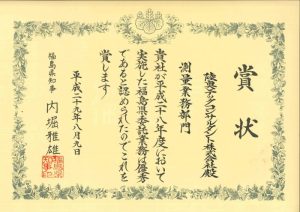 賞状
測量業務部門
陸奥テックコンサルタント株式会社殿
貴社が平成二十八年度において
実施した福島県委託業務は優秀
であると認められたのでこれを
賞します
平成二十九年八月九日
福島県知事 内堀雅雄